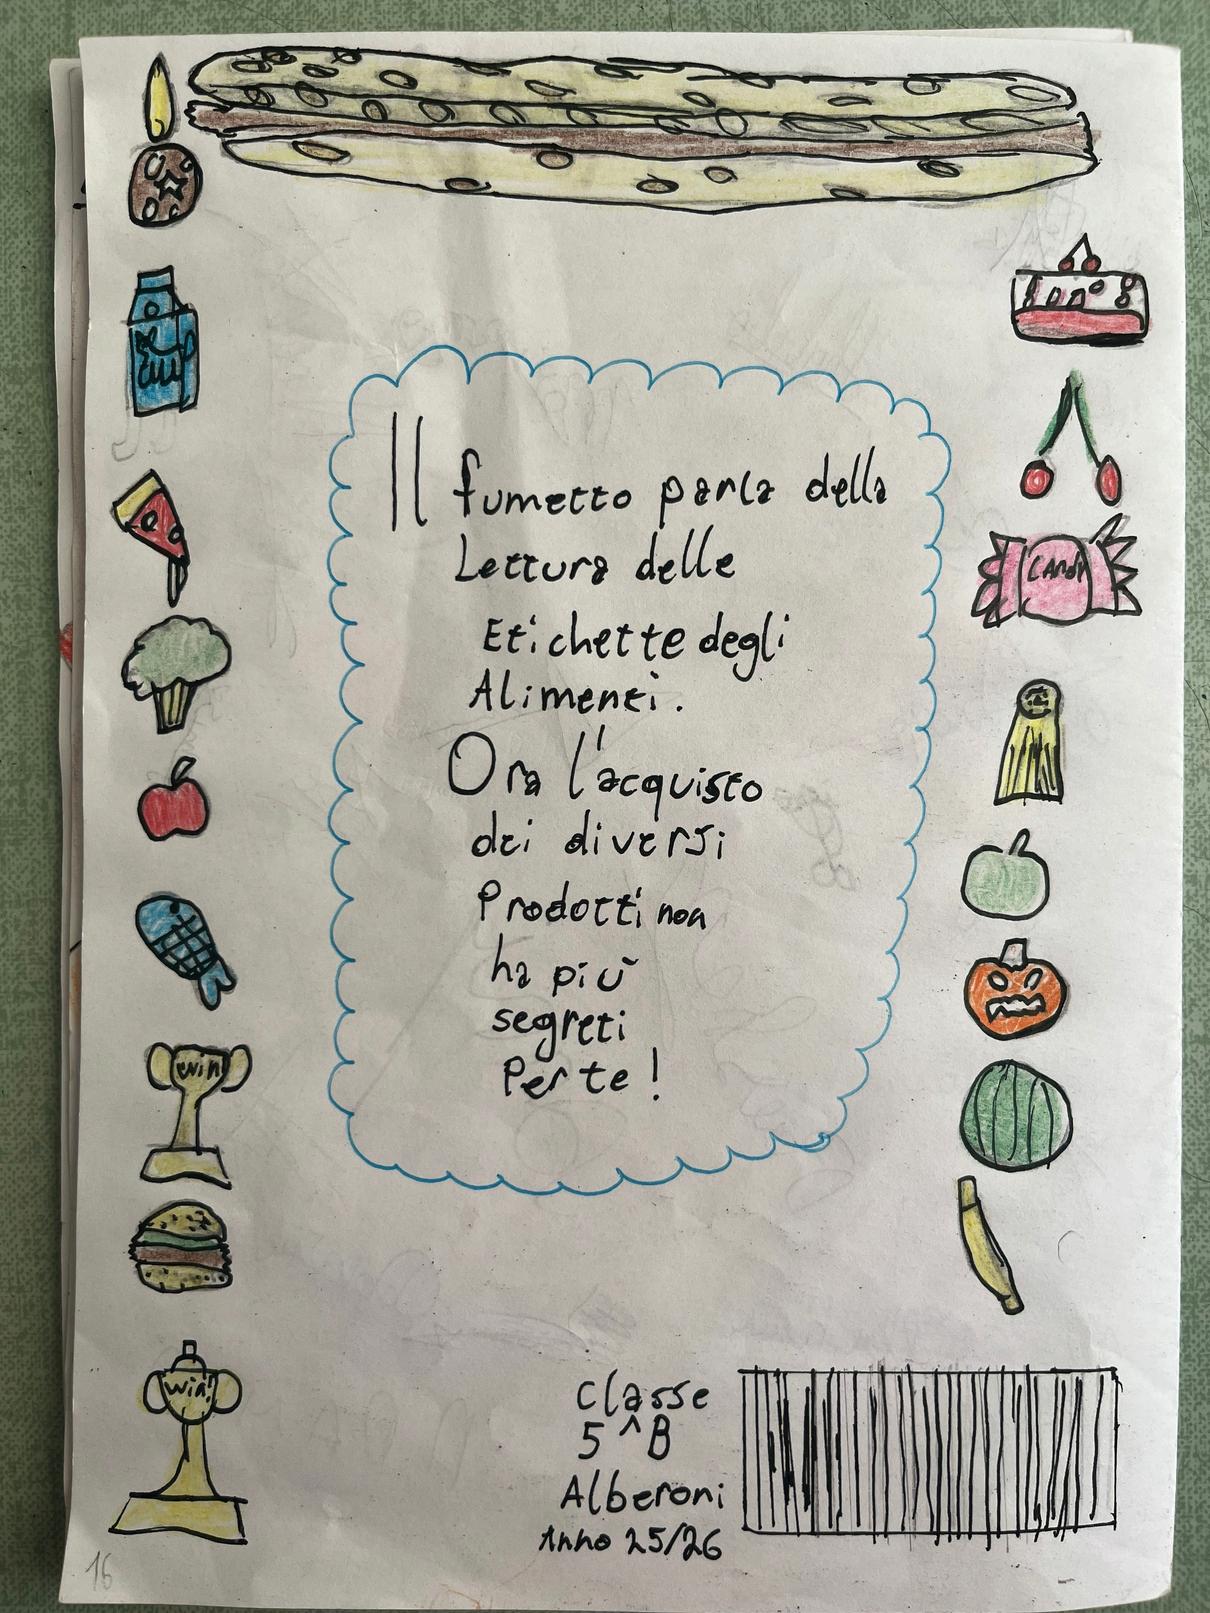 Il fumetto parla della
Lettura delle
Etichette degli
Alimenti.
Ora l'acquisto
dei diversi
Prodotti non
ha più
segreti
Per te!
CANDY
Win!
Win!
Classe
5^B
Alberoni
Anno 25/26
16